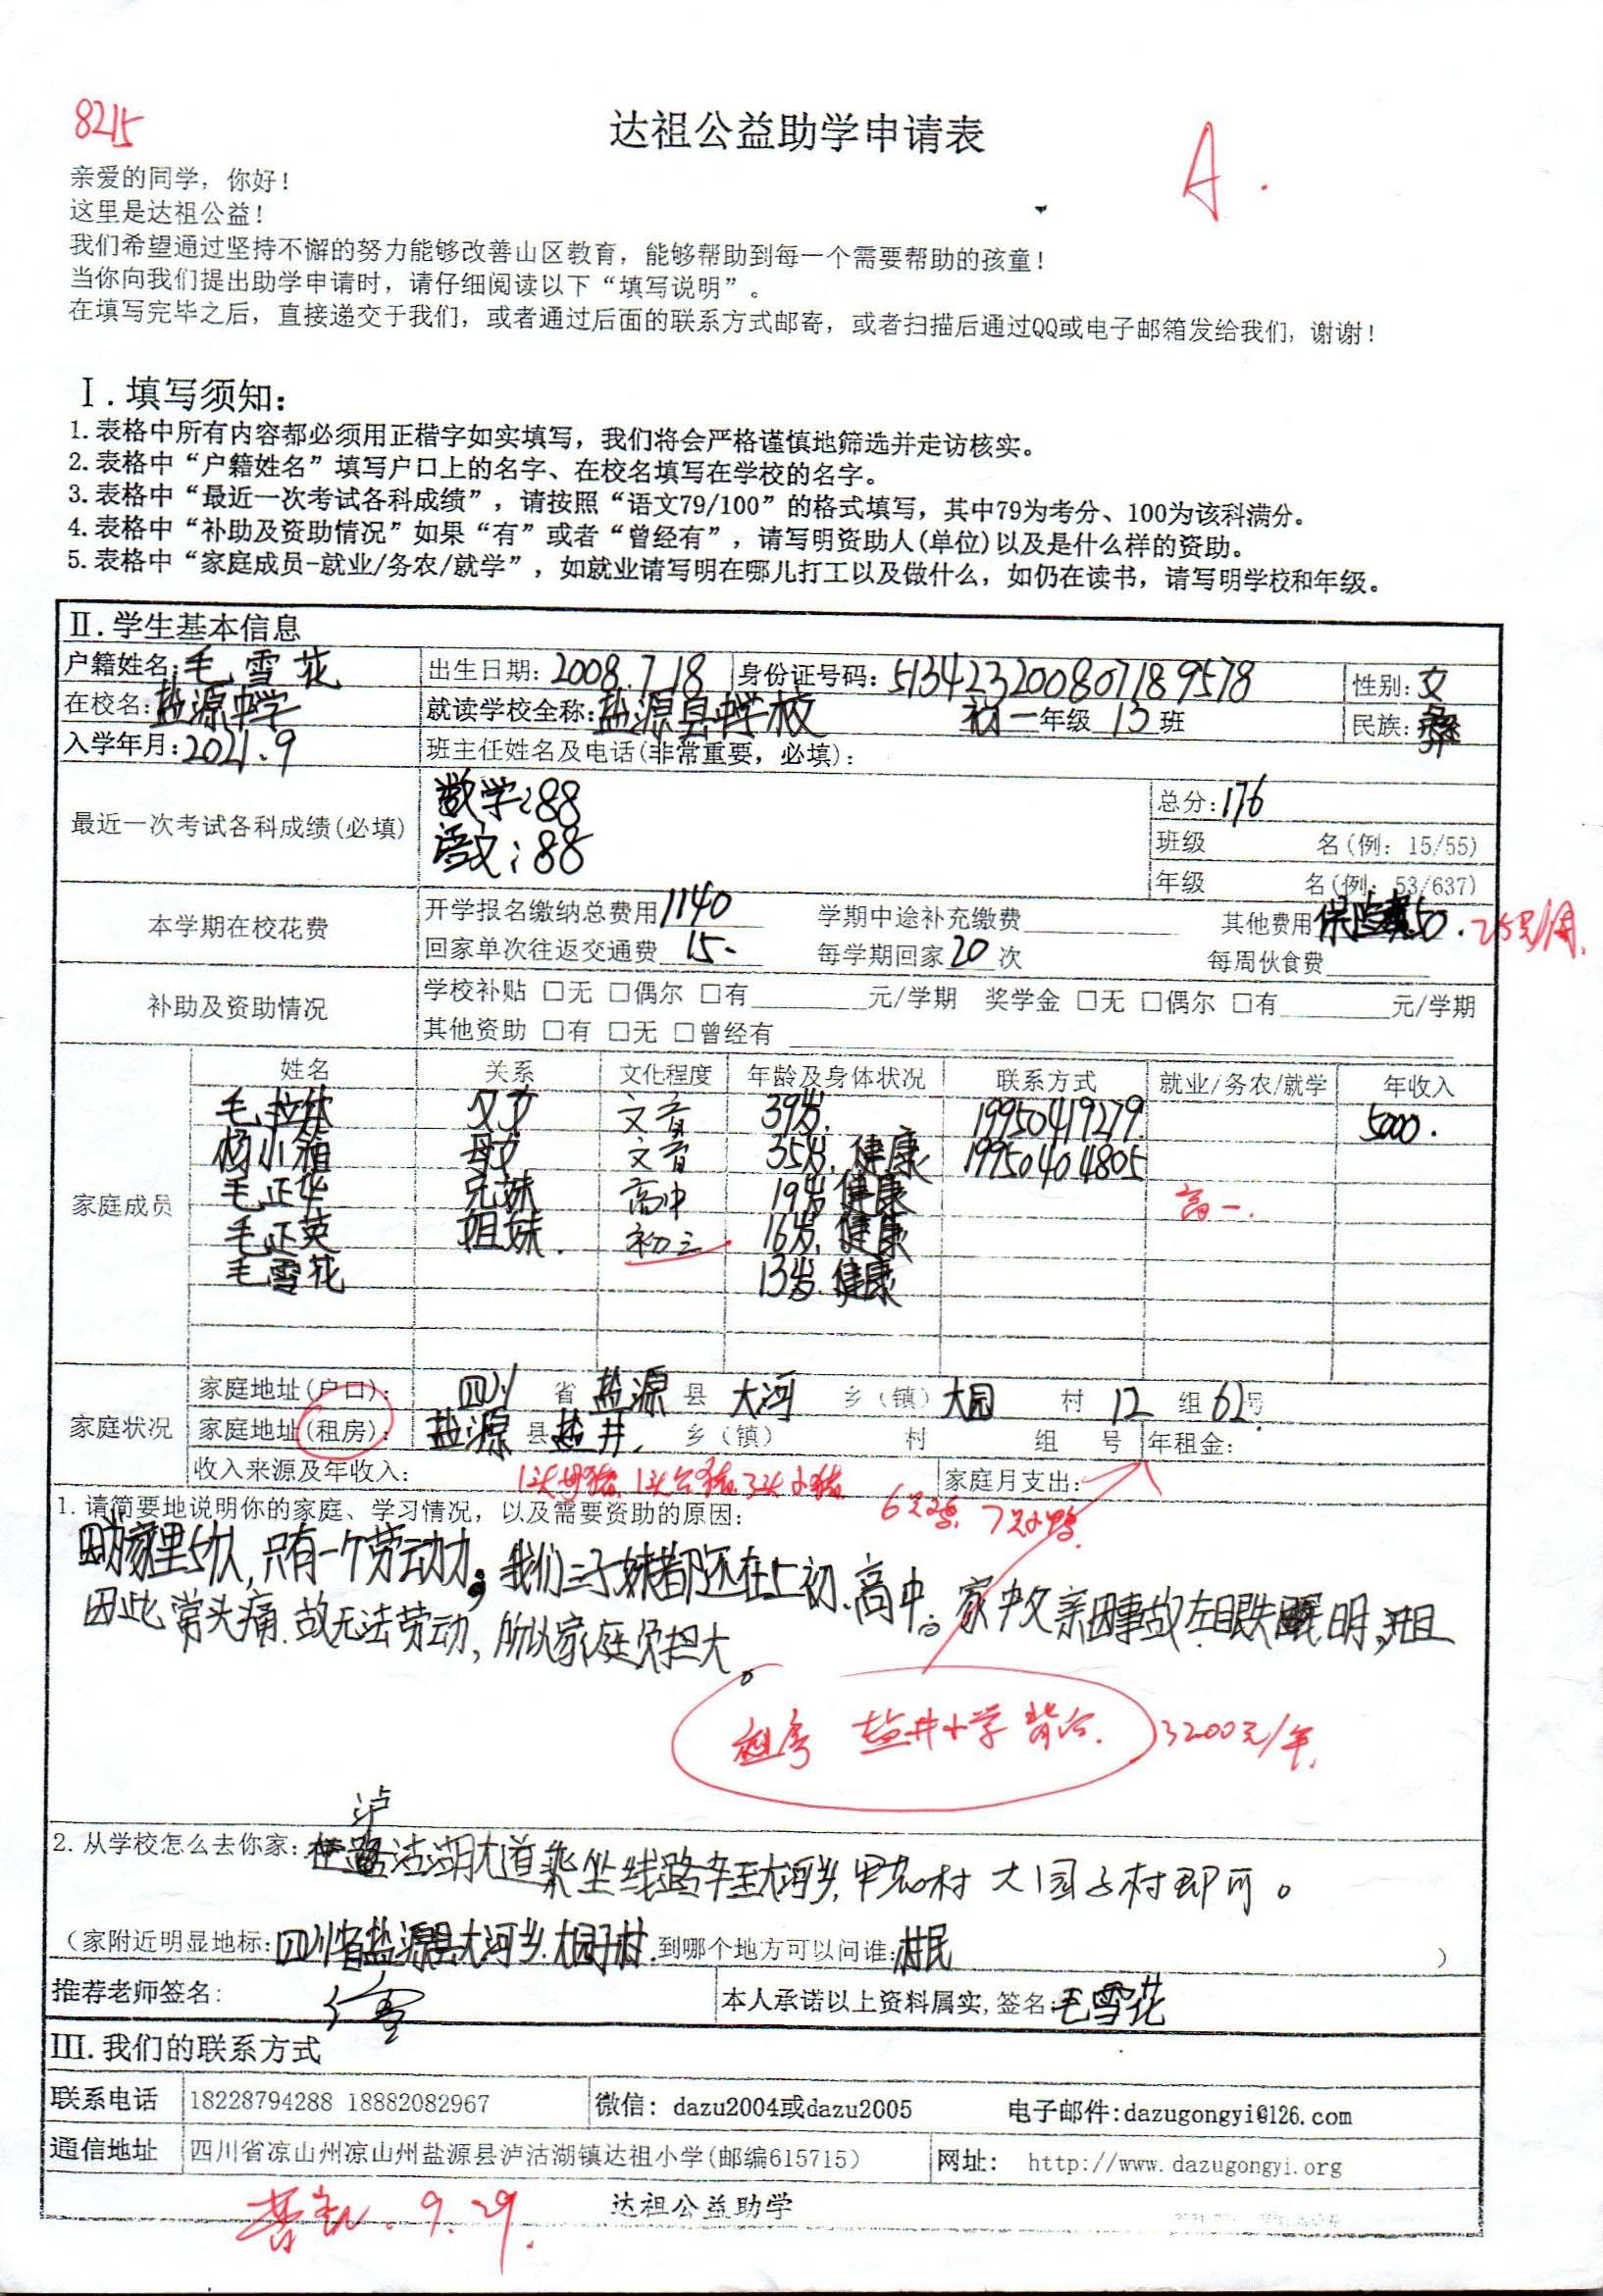 8215
达祖公益助学申请表
A.
亲爱的同学，你好！
这里是达祖公益！
我们希望通过坚持不懈的努力能够改善山区教育，能够帮助到每一个需要帮助的孩童！
当你向我们提出助学申请时，请仔细阅读以下“填写说明”。
在填写完毕之后，直接递交于我们，或者通过后面的联系方式邮寄，或者扫描后通过QQ或电子邮箱发给我们，谢谢！
Ⅰ.填写须知：
1.表格中所有内容都必须用正楷字如实填写，我们将会严格谨慎地筛选并走访核实。
2.表格中“户籍姓名”填写户口上的名字、在校名填写在学校的名字。
3.表格中“最近一次考试各科成绩”，请按照“语文79/100”的格式填写，其中79为考分、100为该科满分。
4.表格中“补助及资助情况”如果“有”或者“曾经有”，请写明资助人(单位)以及是什么样的资助。
5.表格中“家庭成员-就业/务农/就学”，如就业请写明在哪儿打工以及做什么，如仍在读书，请写明学校和年级。
Ⅱ.学生基本信息
户籍姓名：毛雪花 出生日期：2008.7.18 身份证号码：513423200807189578 性别：女
在校名：盐源中学 就读学校全称：盐源县中学校 初一年级 13班 民族：彝
入学年月：2021.9 班主任姓名及电话(非常重要，必填)：
最近一次考试各科成绩(必填) 数学：88 总分：176
语文：88 班级 名(例：15/55)
年级 名(例：53/637)
本学期在校花费 开学报名缴纳总费用1140 学期中途补充缴费 其他费用保险费50. 25元/周.
回家单次往返交通费15. 每学期回家20次 每周伙食费
补助及资助情况 学校补贴 □无 □偶尔 □有 元/学期 奖学金 □无 □偶尔 □有 元/学期
其他资助 □有 □无 □曾经有
家庭成员 姓名 关系 文化程度 年龄及身体状况 联系方式 就业/务农/就学 年收入
毛 父女 文盲 39岁. 19950419279. 5000.
杨小 母女 文盲 35岁.健康 19950404805
毛正华 兄妹 高中 19岁健康 高一.
毛正英 姐妹. 初三 16岁.健康
毛雪花 13岁.健康
家庭状况 家庭地址(户口)： 四川 省 盐源 县 大河 乡（镇）大园 村 12 组 62号
家庭地址(租房)： 盐源 县 盐井. 乡（镇） 村 组 号 年租金：
收入来源及年收入： 1头母猪.1头公猪.3头小猪 家庭月支出：
6只鸡.7只小鸭.
1.请简要地说明你的家庭、学习情况，以及需要资助的原因：
因为家里5个人,只有一个劳动力；我们三子妹都还在上初、高中。家中父亲因事故左眼失明,并且
因此常头痛.故无法劳动,所以家庭负担大。
租房 盐井小学背后. 3200元/年.
泸
2.从学校怎么去你家：在沽湖大道乘坐线路车至大河乡,甲岩村 大园子村即可。
（家附近明显地标：四川省盐源县大河乡.大园子村.到哪个地方可以问谁：村民 ）
推荐老师签名： 本人承诺以上资料属实,签名：毛雪花
Ⅲ.我们的联系方式
联系电话 18228794288 18882082967 微信：dazu2004或dazu2005 电子邮件:dazugongyi@126.com
通信地址 四川省凉山州凉山州盐源县泸沽湖镇达祖小学(邮编615715) 网址： http://www.dazugongyi.org
9.29. 达祖公益助学